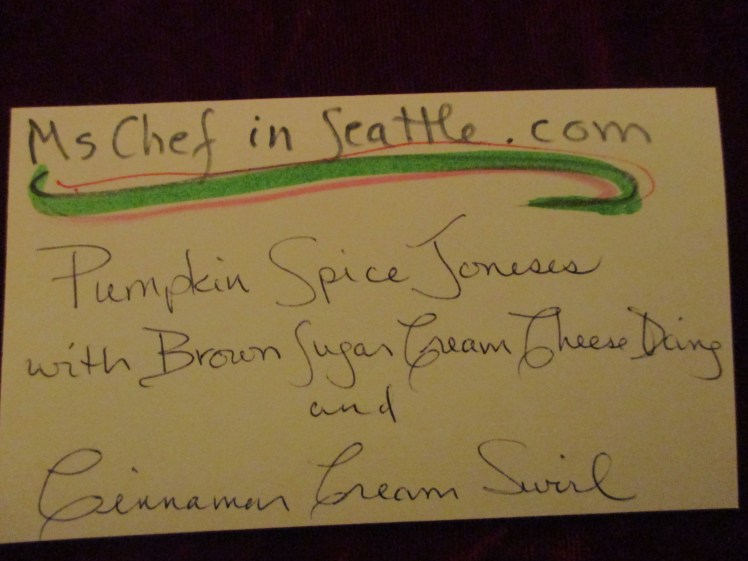 Ms Chef in Seattle.com
Pumpkin Spice Joneses
with Brown Sugar Cream Cheese Icing
and
Cinnamon Cream Swirl